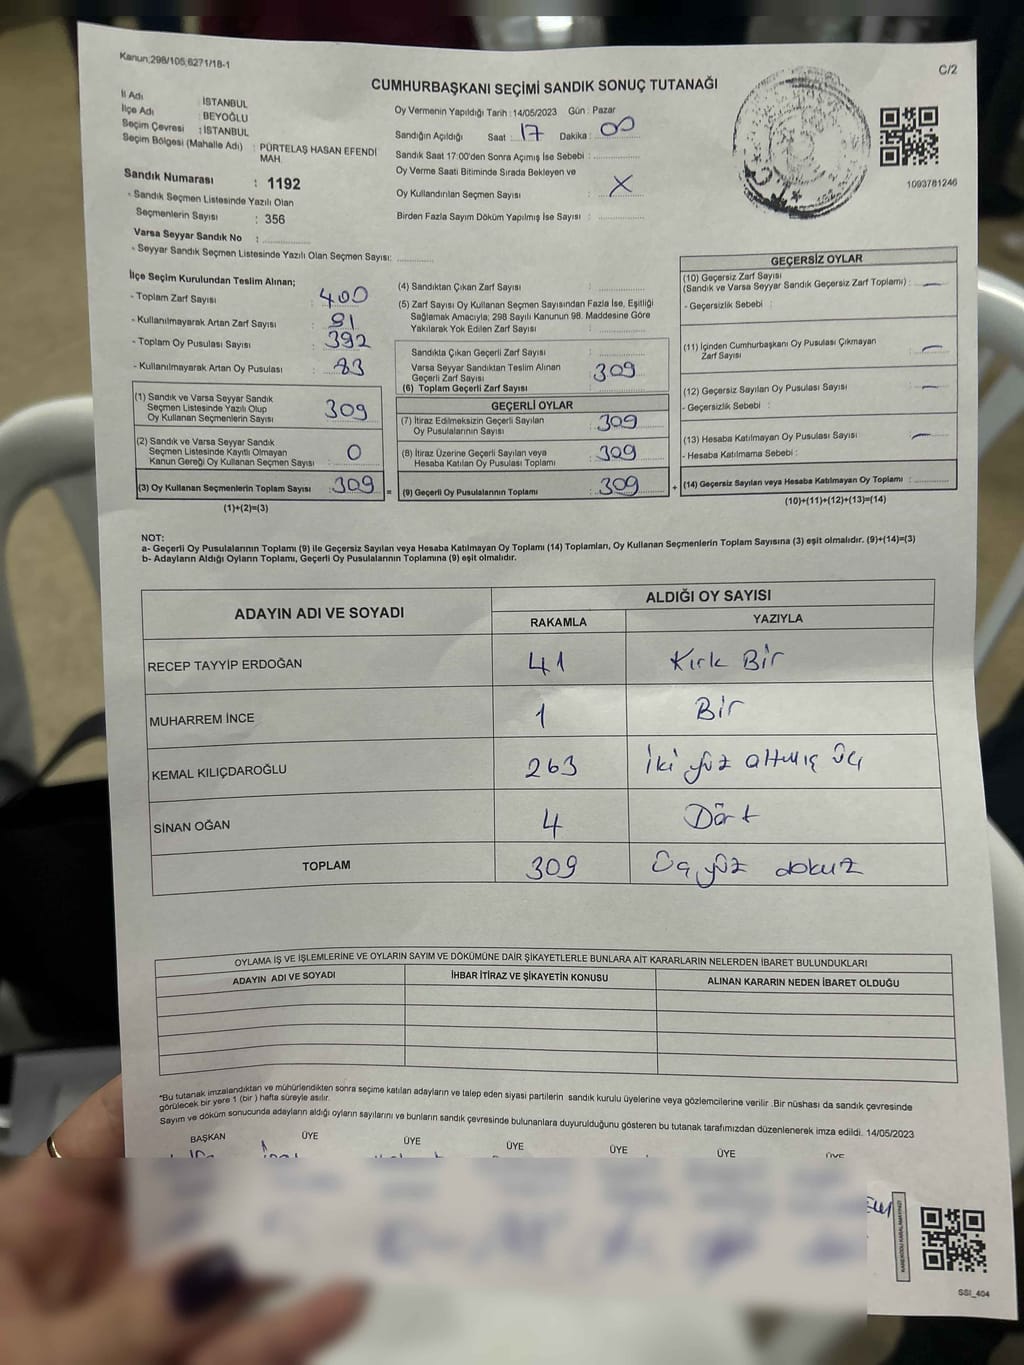 Kanun:298/105,6271/18-1
C/2
CUMHURBAŞKANI SEÇİMİ SANDIK SONUÇ TUTANAĞI
İl Adı : İSTANBUL
İlçe Adı : BEYOĞLU
Seçim Çevresi : İSTANBUL
Seçim Bölgesi (Mahalle Adı) : PÜRTELAŞ HASAN EFENDİ
MAH.
Sandık Numarası : 1192
- Sandık Seçmen Listesinde Yazılı Olan
Seçmenlerin Sayısı : 356
Varsa Seyyar Sandık No :
- Seyyar Sandık Seçmen Listesinde Yazılı Olan Seçmen Sayısı:
Oy Vermenin Yapıldığı Tarih : 14/05/2023 Gün : Pazar
Sandığın Açıldığı Saat : 17 Dakika : 00
Sandık Saat 17:00'den Sonra Açımış İse Sebebi :
Oy Verme Saati Bitiminde Sırada Bekleyen ve
Oy Kullandırılan Seçmen Sayısı : X
Birden Fazla Sayım Döküm Yapılmış İse Sayısı :
1093781246
İlçe Seçim Kurulundan Teslim Alınan;
- Toplam Zarf Sayısı : 400
- Kullanılmayarak Artan Zarf Sayısı : 91
- Toplam Oy Pusulası Sayısı : 392
- Kullanılmayarak Artan Oy Pusulası : 83
(1) Sandık ve Varsa Seyyar Sandık
Seçmen Listesinde Yazılı Olup
Oy Kullanan Seçmenlerin Sayısı : 309
(2) Sandık ve Varsa Seyyar Sandık
Seçmen Listesinde Kayıtlı Olmayan
Kanun Gereği Oy Kullanan Seçmen Sayısı : 0
(3) Oy Kullanan Seçmenlerin Toplam Sayısı : 309
(1)+(2)=(3)
=
(4) Sandıktan Çıkan Zarf Sayısı :
(5) Zarf Sayısı Oy Kullanan Seçmen Sayısından Fazla İse, Eşitliği
Sağlamak Amacıyla; 298 Sayılı Kanunun 98. Maddesine Göre
Yakılarak Yok Edilen Zarf Sayısı :
Sandıkta Çıkan Geçerli Zarf Sayısı :
Varsa Seyyar Sandıktan Teslim Alınan
Geçerli Zarf Sayısı : 309
(6) Toplam Geçerli Zarf Sayısı
GEÇERLİ OYLAR
(7) İtiraz Edilmeksizin Geçerli Sayılan
Oy Pusulalarının Sayısı : 309
(8) İtiraz Üzerine Geçerli Sayılan veya
Hesaba Katılan Oy Pusulası Toplamı : 309
(9) Geçerli Oy Pusulalarının Toplamı : 309
+
GEÇERSİZ OYLAR
(10) Geçersiz Zarf Sayısı
(Sandık ve Varsa Seyyar Sandık Geçersiz Zarf Toplamı) : —
- Geçersizlik Sebebi :
(11) İçinden Cumhurbaşkanı Oy Pusulası Çıkmayan
Zarf Sayısı : —
(12) Geçersiz Sayılan Oy Pusulası Sayısı : —
- Geçersizlik Sebebi :
(13) Hesaba Katılmayan Oy Pusulası Sayısı : —
- Hesaba Katılmama Sebebi :
(14) Geçersiz Sayılan veya Hesaba Katılmayan Oy Toplamı :
(10)+(11)+(12)+(13)=(14)
NOT:
a- Geçerli Oy Pusulalarının Toplamı (9) ile Geçersiz Sayılan veya Hesaba Katılmayan Oy Toplamı (14) Toplamları, Oy Kullanan Seçmenlerin Toplam Sayısına (3) eşit olmalıdır. (9)+(14)=(3)
b- Adayların Aldığı Oyların Toplamı, Geçerli Oy Pusulalarının Toplamına (9) eşit olmalıdır.
ADAYIN ADI VE SOYADI ALDIĞI OY SAYISI
RAKAMLA YAZIYLA
RECEP TAYYİP ERDOĞAN 41 Kırk Bir
MUHARREM İNCE 1 Bir
KEMAL KILIÇDAROĞLU 263 İki yüz altmış üç
SİNAN OĞAN 4 Dört
TOPLAM 309 Üç yüz dokuz
OYLAMA İŞ VE İŞLEMLERİNE VE OYLARIN SAYIM VE DÖKÜMÜNE DAİR ŞİKAYETLERLE BUNLARA AİT KARARLARIN NELERDEN İBARET BULUNDUKLARI
ADAYIN ADI VE SOYADI İHBAR İTİRAZ VE ŞİKAYETİN KONUSU ALINAN KARARIN NEDEN İBARET OLDUĞU
*Bu tutanak imzalandıktan ve mühürlendikten sonra seçime katılan adayların ve talep eden siyasi partilerin sandık kurulu üyelerine veya gözlemcilerine verilir .Bir nüshası da sandık çevresinde
görülecek bir yere 1 (bir ) hafta süreyle asılır.
Sayım ve döküm sonucunda adayların aldığı oyların sayılarını ve bunların sandık çevresinde bulunanlara duyurulduğunu gösteren bu tutanak tarafımızdan düzenlenerek imza edildi. 14/05/2023
BAŞKAN ÜYE ÜYE ÜYE ÜYE ÜYE ÜYE
KAREKODU KARALAMAYINIZ!
SSI_404